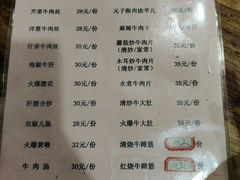 芹菜牛肉丝 28元/份
洋葱牛肉丝 28元/份
仔姜牛肉丝 35元/份
泡椒牛肝 30元/份
火爆腰花 30元/份
肝腰合炒 30元/份
双椒儿肠 30元/份
火爆黄喉 32元/份
牛肉汤 30元/份
元子酥肉烧芋儿 30元/份
麻辣牛肉干
蘑菇炒牛肉片 35元/份
(清炒/家常)
木耳炒牛肉片 35元/份
(清炒/家常)
水煮牛肉片 35元/份
清炒牛大肚 35元/份
火爆牛大肚 35元/份
清烧牛蹄筋 42 /份
红烧牛蹄筋 /份